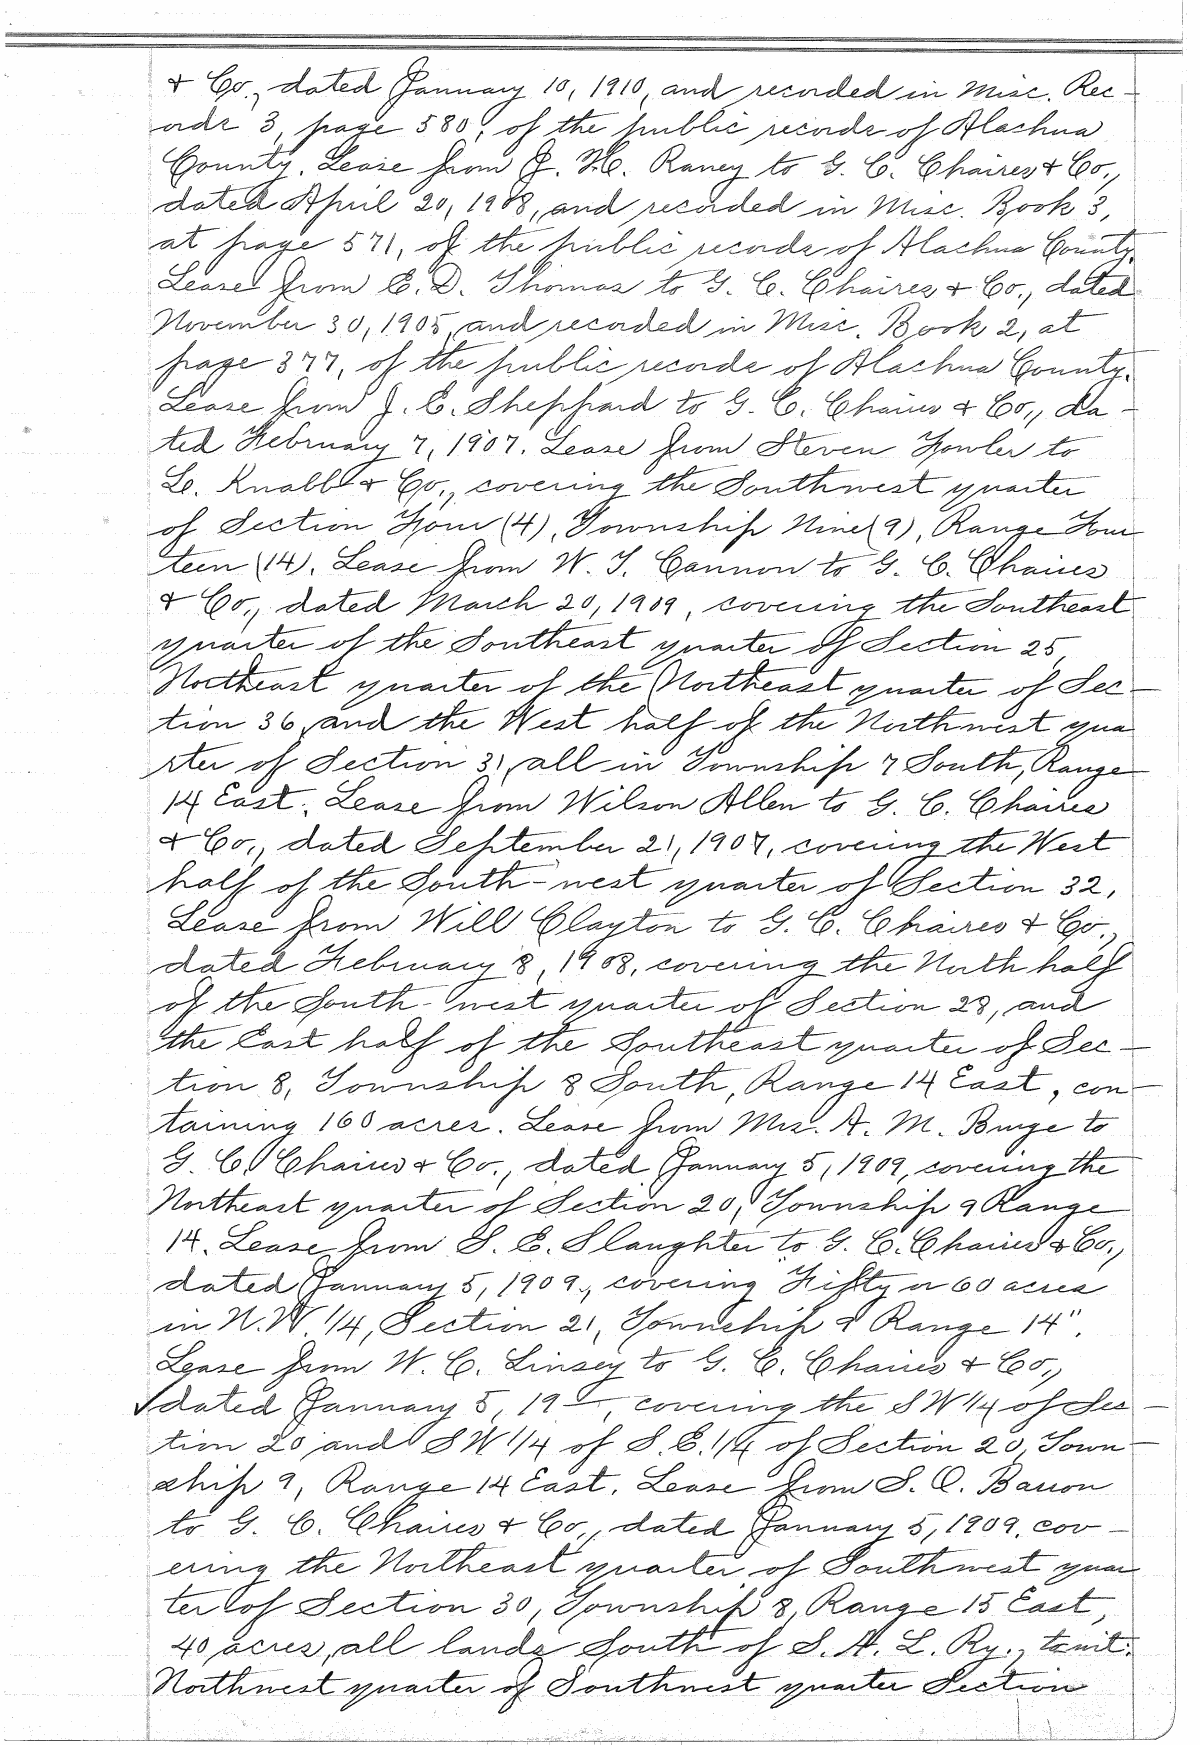 & Co., dated January 10, 1910, and recorded in Misc. Rec-
ords 3, page 580, of the public records of Alachua
County. Lease from J. H. Raney to G. C. Chaires & Co.,
dated April 20, 1908, and recorded in Misc. Book 3,
at page 571, of the public records of Alachua County.
Lease from E. D. Thomas to G. C. Chaires & Co., dated
November 30, 1905, and recorded in Misc. Book 2, at
page 377, of the public records of Alachua County.
Lease from J. E. Sheppard to G. C. Chaires & Co., da-
ted February 7, 1907. Lease from Steven Fowler to
L. Knabb & Co., covering the Southwest quarter
of Section Four (4), Township Nine (9), Range Four
teen (14). Lease from W. T. Cannon to G. C. Chaires
& Co., dated March 20, 1909, covering the Southeast
quarter of the Southeast quarter of Section 25,
Northeast quarter of the Northeast quarter of Sec-
tion 36, and the West half of the Northwest qua
rter of Section 31, all in Township 7 South, Range
14 East. Lease from Wilson Allen to G. C. Chaires
& Co., dated September 21, 1907, covering the West
half of the South-west quarter of Section 32.
Lease from Will Clayton to G. C. Chaires & Co.,
dated February 8, 1908, covering the North half
of the South-west quarter of Section 28, and
the East half of the Southeast quarter of Sec-
tion 8, Township 8 South, Range 14 East, con-
taining 160 acres. Lease from Mrs. A. M. Burge to
G. C. Chaires & Co., dated January 5, 1909, covering the
Northeast quarter of Section 20, Township 9 Range
14. Lease from S. E. Slaughter to G. C. Chaires & Co.,
dated January 5, 1909., covering "Fifty or 60 acres
in N.W. 1/4, Section 21, Township 9 Range 14".
Lease from W. C. Linsey to G. C. Chaires & Co.,
dated January 5, 19—, covering the SW 1/4 of Sec-
tion 20 and SW 1/4 of S.E. 1/4 of Section 20, Town-
ship 9, Range 14 East. Lease from S. O. Barron
to G. C. Chaires & Co., dated January 5, 1909, cov-
ering the Northeast quarter of Southwest quar
ter of Section 30, Township 8, Range 15 East,
40 acres, all lands South of S. A. L. Ry., towit:
Northwest quarter of Southwest quarter Section